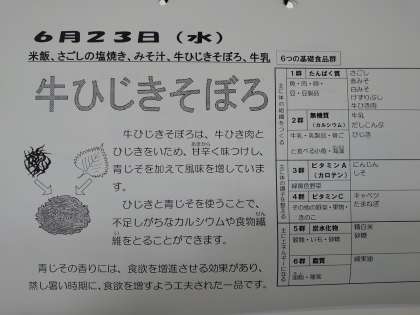 6月23日（水）
米飯、さごしの塩焼き、みそ汁、牛ひじきそぼろ、牛乳
牛ひじきそぼろ
牛ひじきそぼろは、牛ひき肉と
ひじきをいため、甘辛く味つけし、
あまから
青じそを加えて風味を増していま
す。
ひじきと青じそを使うことで、
不足しがちなカルシウムや食物繊
せん
維をとることができます。
い
青じその香りには、食欲を増進させる効果があり、
蒸し暑い時期に、食欲を増すよう工夫された一品です。
6つの基礎食品群
主に体の組織をつくる
1群 たんぱく質
魚・肉・卵・
豆・豆製品
さごし
赤みそ
白みそ
けずりぶし
牛ひき肉
2群 無機質
（カルシウム）
牛乳・乳製品・骨ご
と食べる小魚・海藻
牛乳
だしこんぶ
ひじき
主に体の調子を整える
3群 ビタミンA
（カロテン）
緑黄色野菜
にんじん
しそ
4群 ビタミンC
その他の野菜・果物・
きのこ
キャベツ
たまねぎ
主にエネルギーになる
5群 炭水化物
穀類・いも・砂糖
精白米
砂糖
6群 脂質
油脂・種実
綿実油